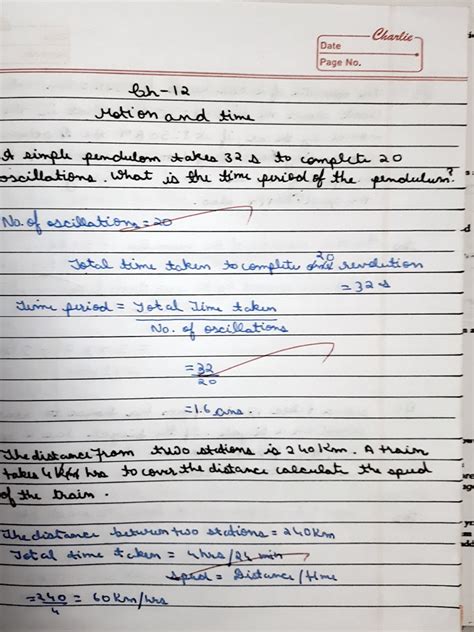 Charlie
Date
Page No.
Ch-12
Motion and time
A simple pendulom takes 32 s to complete 20
oscillations. What is the time period of the pendulum?
No. of oscillations = 20
Total time taken to complete 20 revolution
= 32 s
Time period = Total Time taken
No. of oscillations
= 32
20
= 1.6 ans.
The distance from two stations is 240 Km. A train
takes 4 hrs to cover the distance calculate the speed
of the train.
The distance between two stations = 240 Km
Total time taken = 4 hrs/24 min
Speed = Distance/time
= 240 = 60 Km/hrs
4